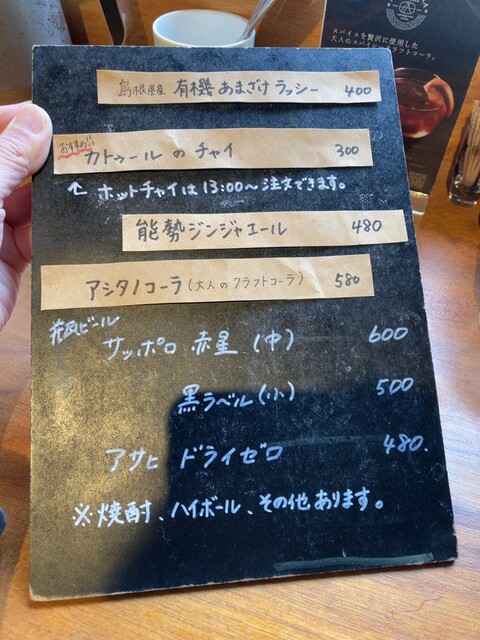 スパイスを贅沢に使用した
大人のスパイシークラフトコーラ。
島根県産 有機 あまざけ ラッシー 400
おすすめ!!
カトゥール の チャイ 300
↑ ホットチャイは 13:00〜 注文できます。
能勢ジンジャエール 480
アシタノコーラ (大人のクラフトコーラ) 580
瓶ビール
サッポロ 赤星 (中) 600
黒ラベル (小) 500
アサヒ ドライゼロ 480.
※焼酎、ハイボール、その他あります。